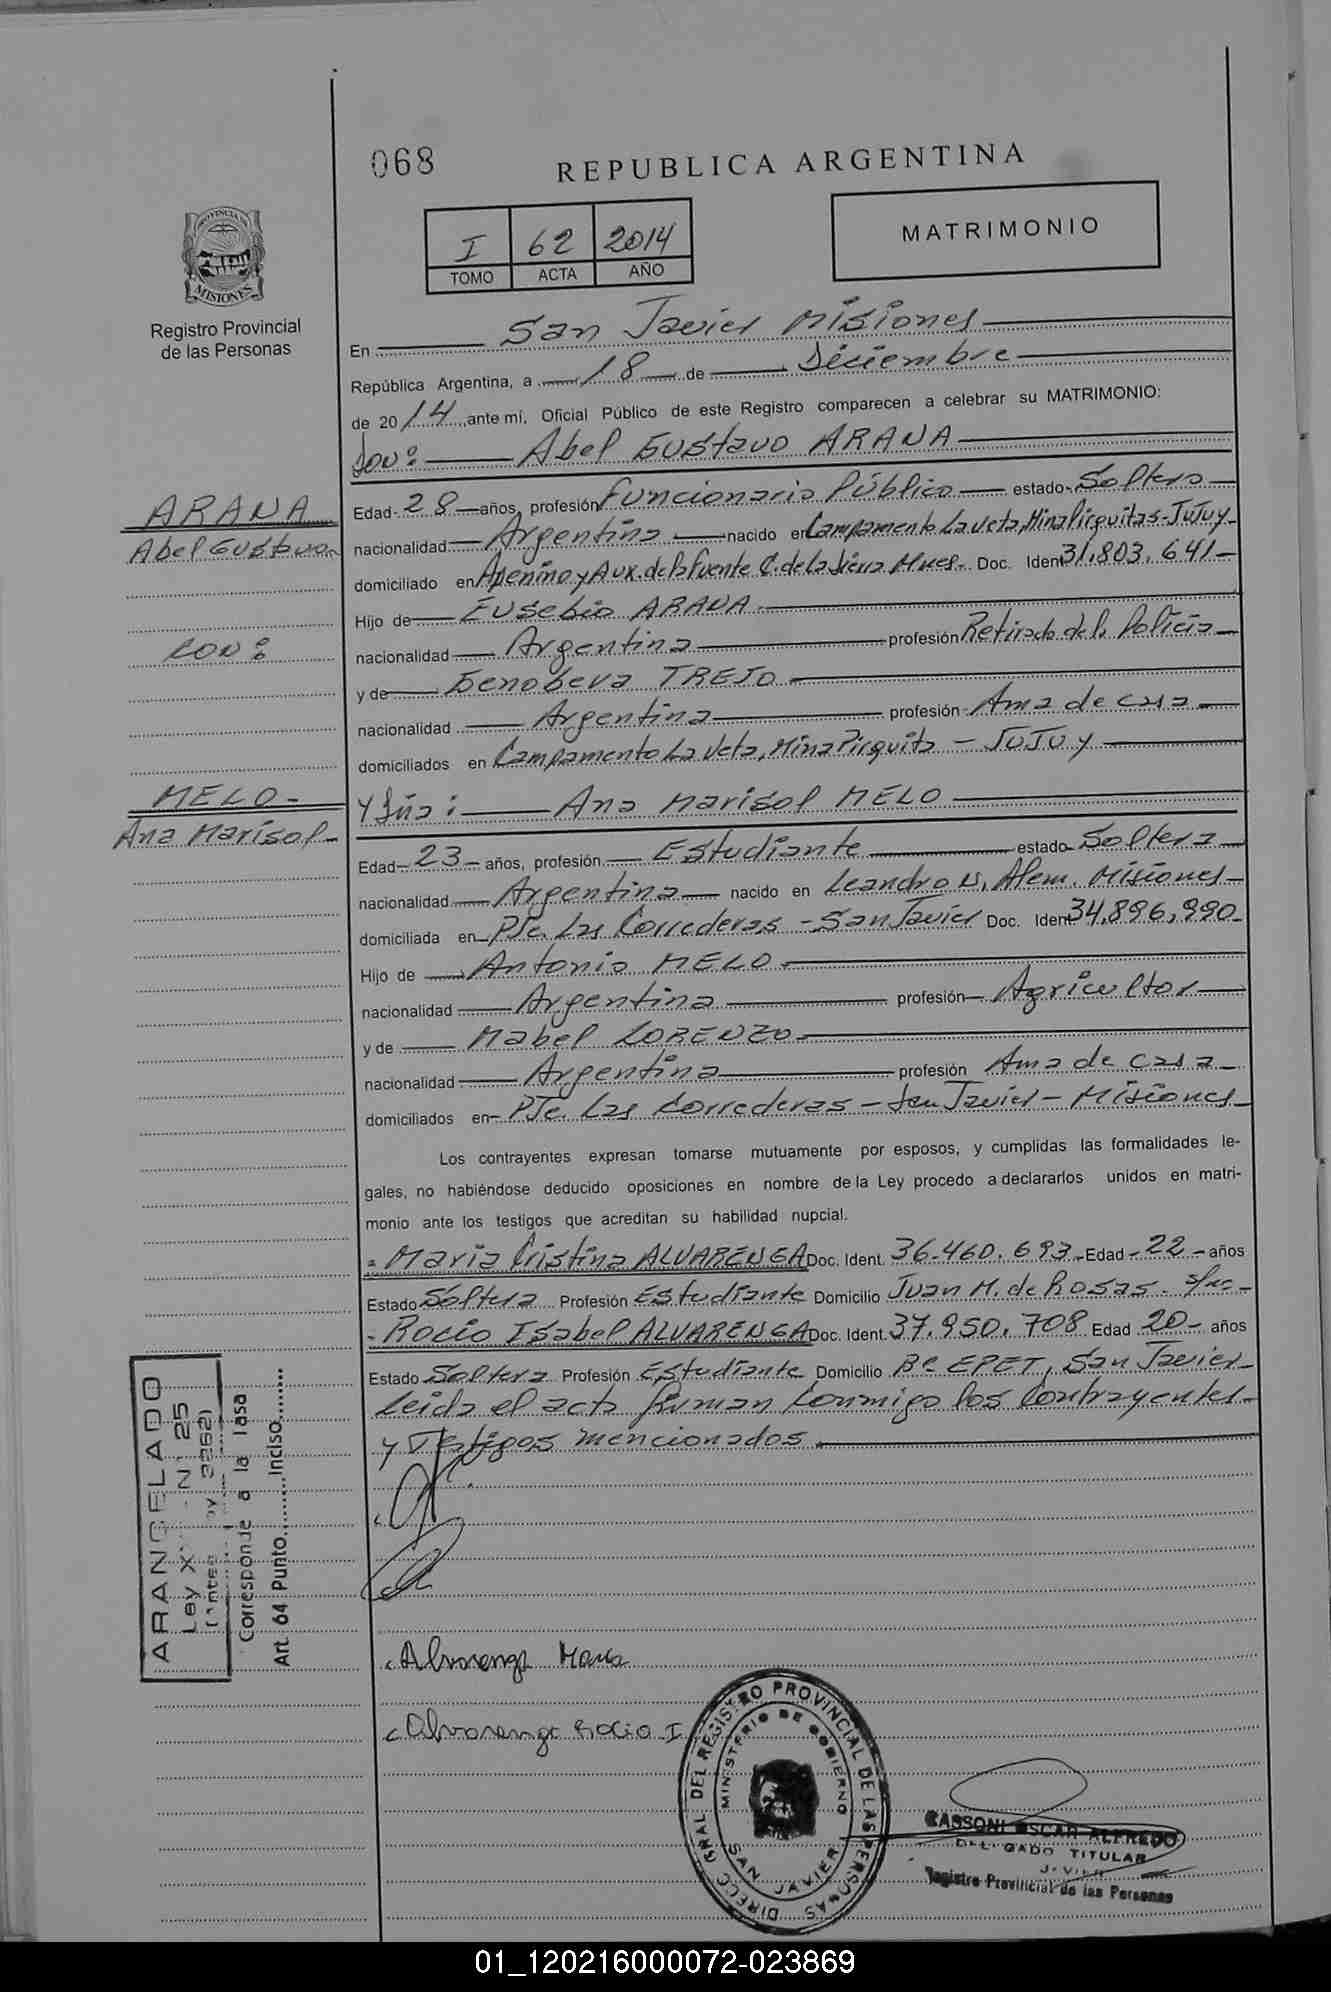 068
REPUBLICA ARGENTINA
I 62 2014
TOMO ACTA AÑO
MATRIMONIO
PROVINCIA DE
MISIONES
Registro Provincial
de las Personas
En San Javier Misiones
República Argentina, a 18 de Diciembre
de 2014 ante mí, Oficial Público de este Registro comparecen a celebrar su MATRIMONIO:
Don: Abel Gustavo ARANA
ARANA
Abel Gustavo
CON:
MELO
Ana Marisol
Edad 28 años, profesión Funcionario Público estado Soltero
nacionalidad Argentina nacido en Campamento La Veta, Mina Pirquitas - Jujuy
domiciliado en Apenino y Aux. de la Fuente C. de la Sierra Mnes. Doc. Ident 31.803.641
Hijo de Eusebio ARANA
nacionalidad Argentina profesión Retirado de la Policía
y de Genobeva TREJO
nacionalidad Argentina profesión Ama de casa
domiciliados en Campamento La Veta, Mina Pirquita - JuJuy
Y Sña: Ana Marisol MELO
Edad 23 años, profesión Estudiante estado Soltera
nacionalidad Argentina nacido en Leandro N. Alem. Misiones
domiciliada en Pje. Las Correderas - San Javier Doc. Ident 34.896.990
Hijo de Antonio MELO
nacionalidad Argentina profesión Agricultor
y de Mabel LORENZO
nacionalidad Argentina profesión Ama de casa
domiciliados en Pje. Las Correderas - San Javier - Misiones
Los contrayentes expresan tomarse mutuamente por esposos, y cumplidas las formalidades le-
gales, no habiéndose deducido oposiciones en nombre de la Ley procedo a declararlos unidos en matri-
monio ante los testigos que acreditan su habilidad nupcial.
María Cristina ALVARENGA Doc. Ident. 36.460.693 Edad 22 años
Estado Soltera Profesión Estudiante Domicilio Juan M. de Rosas.
Rocio Isabel ALVARENGA Doc. Ident. 37.950.708 Edad 20 años
Estado Soltera Profesión Estudiante Domicilio Bº EPET, San Javier
Leida el acta firman conmigo los contrayentes
y Testigos mencionados
ARANCELADO
Ley X N 25
Corresponde a la Tasa
Art. 64 Punto Inciso
Alvarenga Maria
Alvarenga Rocio I
DIRECC. GRAL. DEL REGISTRO PROVINCIAL DE LAS PERSONAS
MINISTERIO DE GOBIERNO
SAN JAVIER
CASSONI OSCAR ALFREDO
DELEGADO TITULAR
Registro Provincial de las Personas
01_120216000072-023869